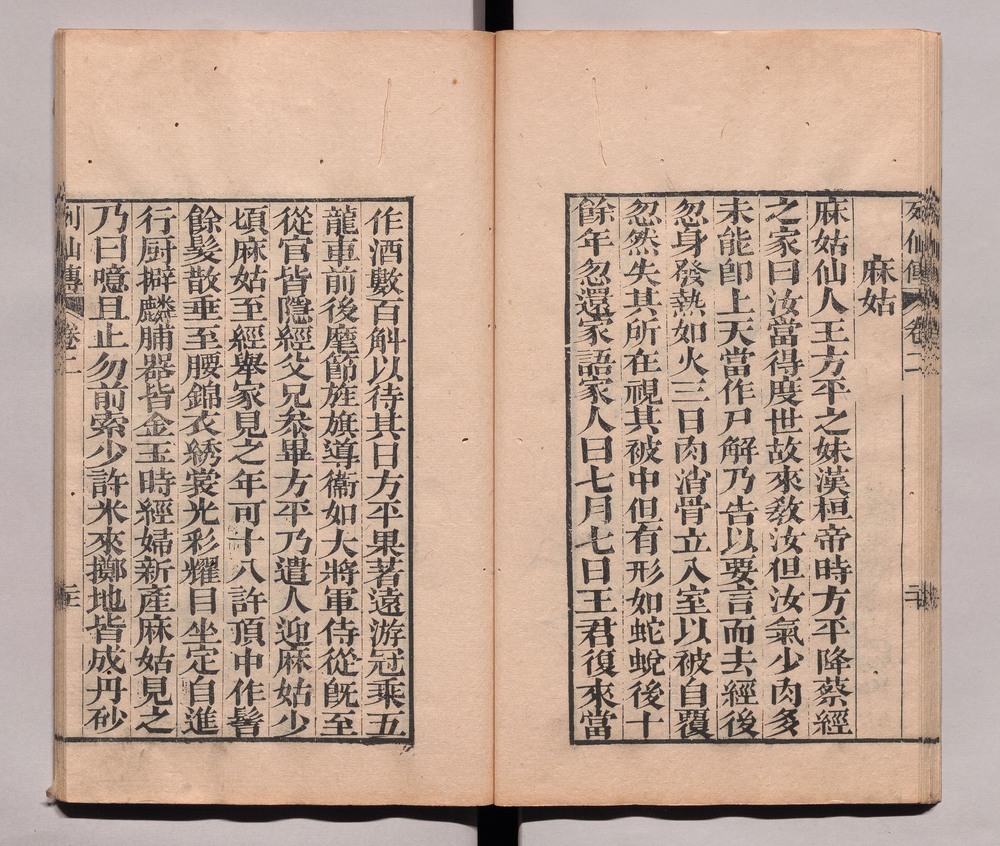 列仙傳 卷二
麻姑
麻姑仙人王方平之妹漢桓帝時方平降蔡經
之家曰汝當得度世故來教汝但汝氣少肉多
未能卽上天當作尸解乃告以要言而去經後
忽身發熱如火三日肉消骨立入室以被自覆
忽然失其所在視其被中但有形如蛇蛻後十
餘年忽還家語家人曰七月七日王君復來當
作酒數百斛以待其日方平果著遠游冠乘五
龍車前後麾節旌旗導衞如大將軍侍從旣至
從官皆隱經父兄叅畢方平乃遣人迎麻姑少
頃麻姑至經舉家見之年可十八許頂中作髻
餘髮散垂至腰錦衣綉裳光彩耀目坐定自進
行厨擗麟脯器皆金玉時經婦新產麻姑見之
乃曰噫且止勿前索少許米來擲地皆成丹砂
列仙傳 卷二